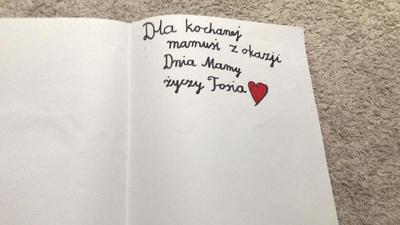 Dla kochanej
mamusi z okazji
Dnia Mamy
życzy Tosia